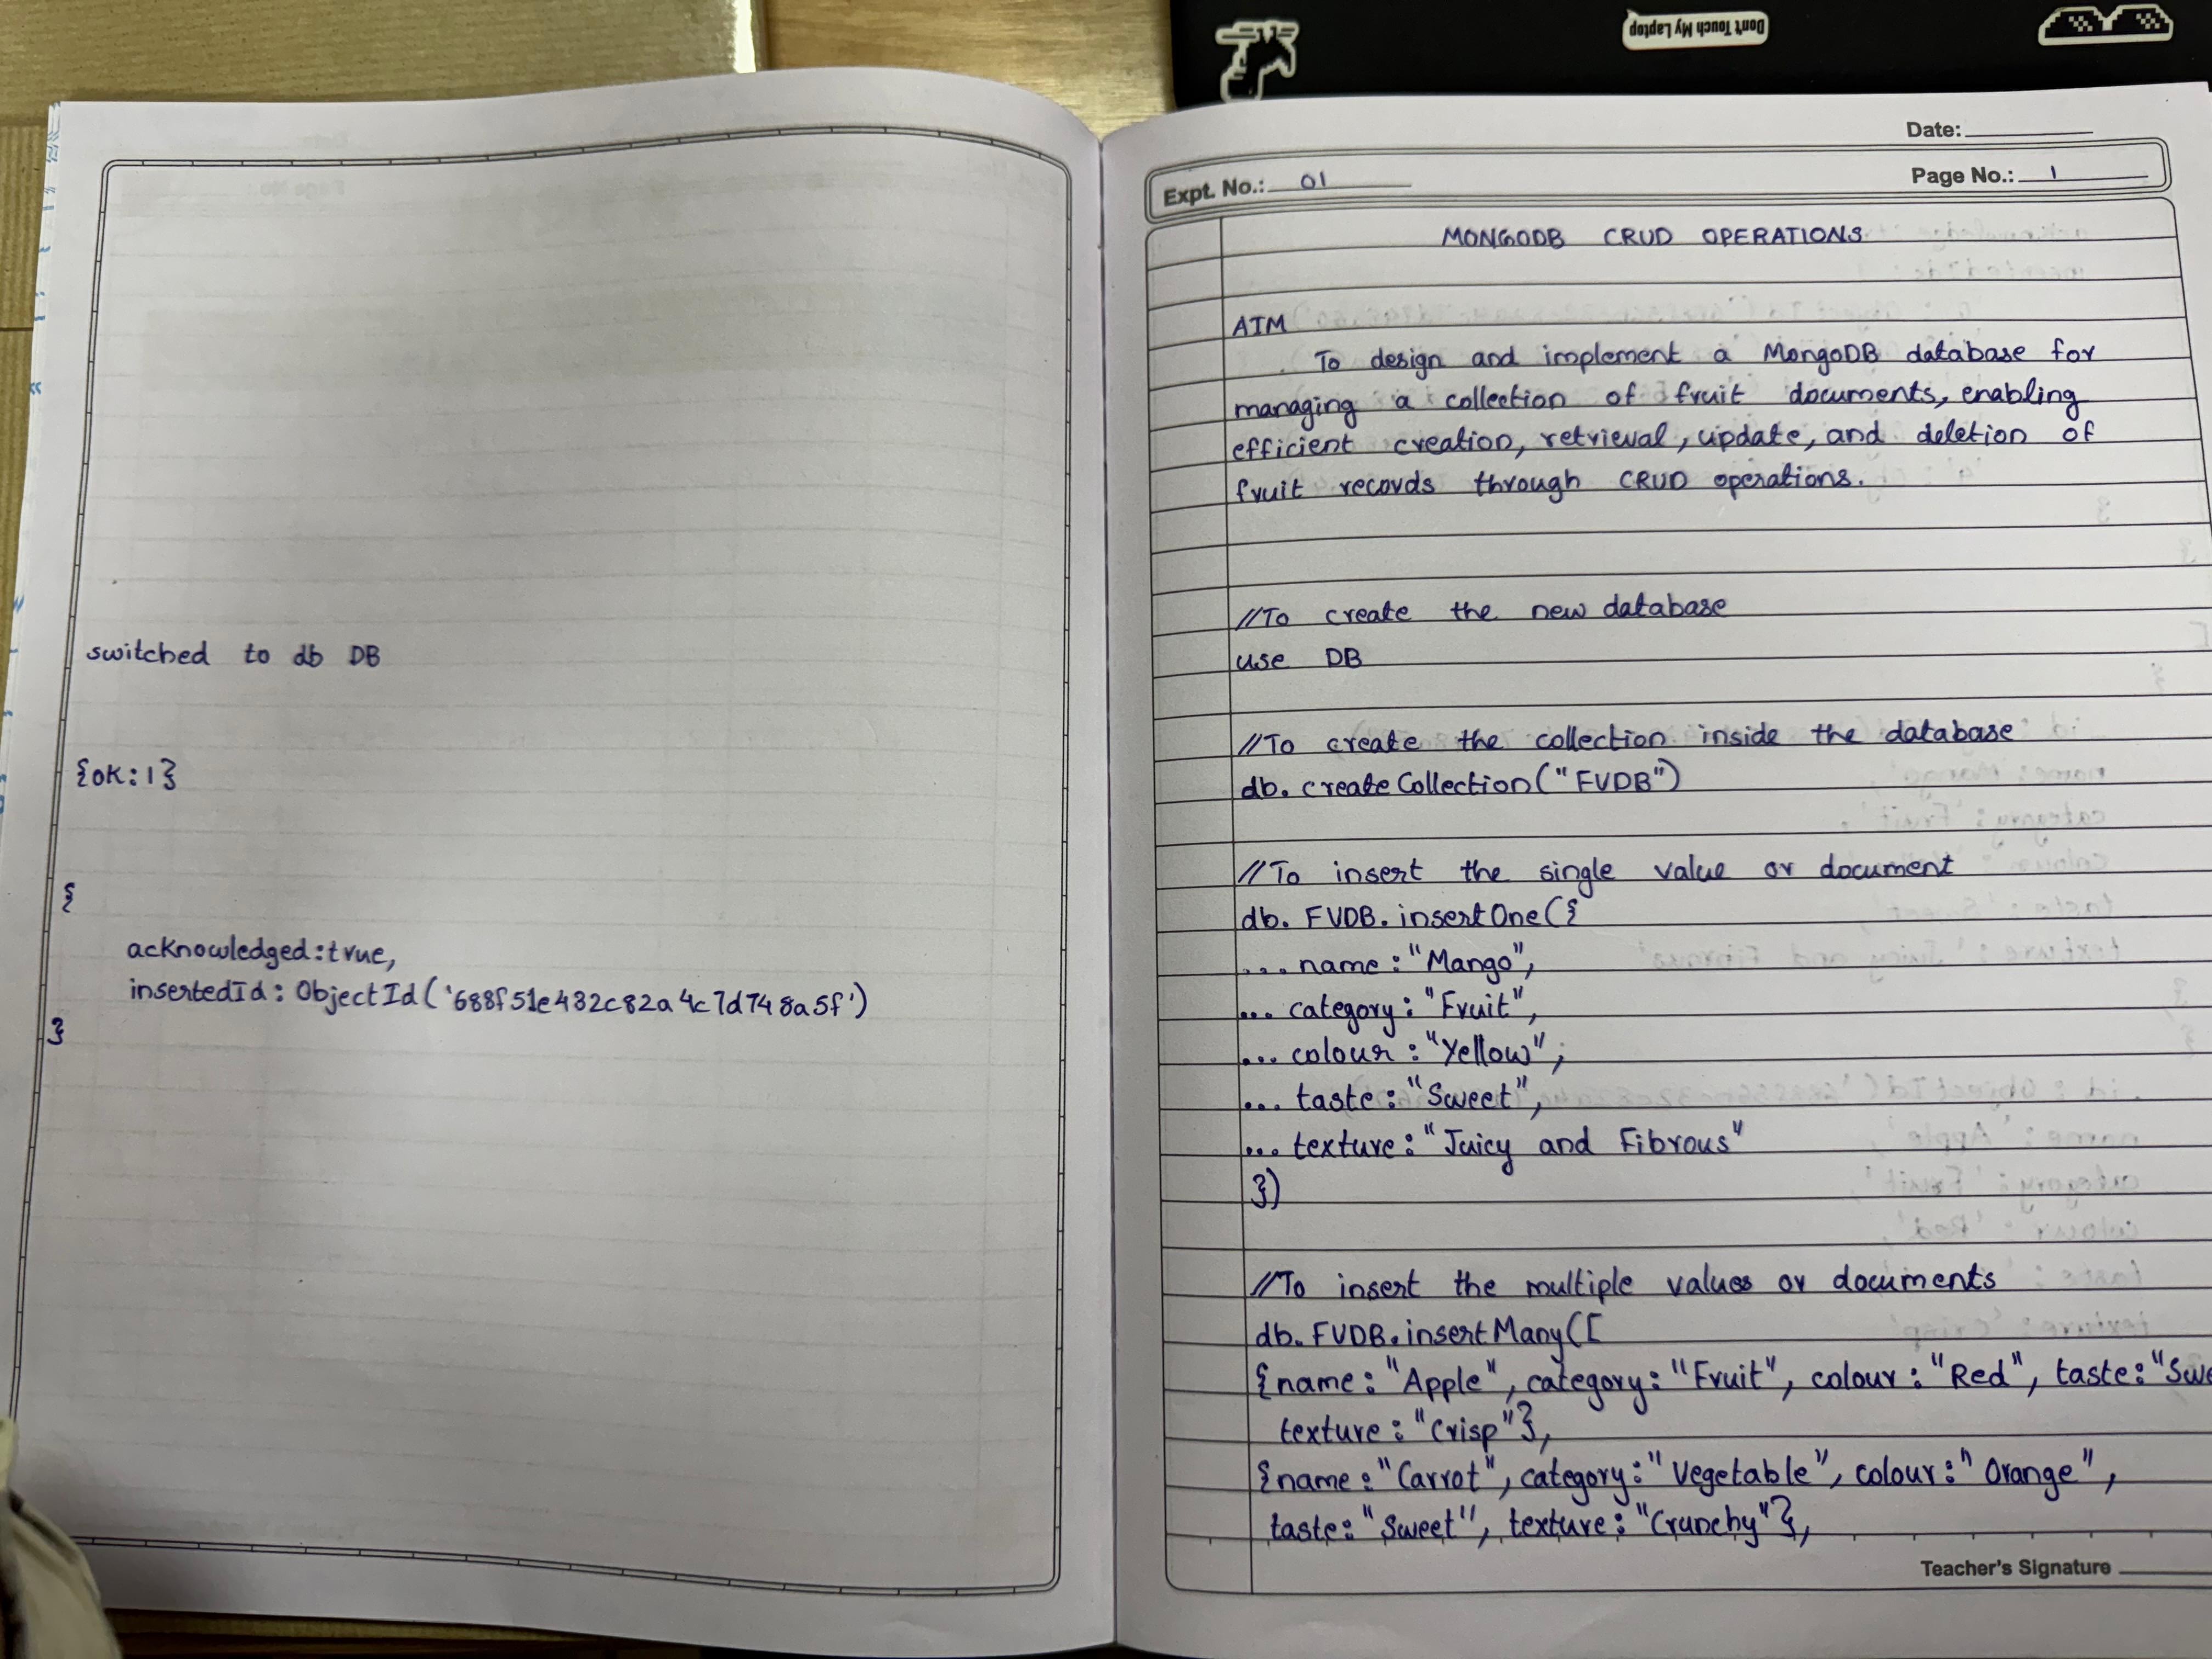 Don't Touch My Laptop
switched to db DB
{ok:1}
{
acknowledged:true,
insertedId: ObjectId('688f51e432c82a4c7d748a5f')
}
Date:
Expt. No.: 01
Page No.: 1
MONGODB CRUD OPERATIONS
AIM
To design and implement a MongoDB database for
managing a collection of fruit documents, enabling
efficient creation, retrieval, update, and deletion of
fruit records through CRUD operations.
//To create the new database
use DB
//To create the collection inside the database
db. createCollection("FVDB")
//To insert the single value or document
db. FVDB.insertOne({
... name:"Mango",
... category:"Fruit",
... colour:"Yellow",
... taste:"Sweet",
... texture:"Juicy and Fibrous"
})
//To insert the multiple values or documents
db. FVDB.insertMany([
{name:"Apple", category:"Fruit", colour:"Red", taste:"Swe
texture:"Crisp"},
{name:"Carrot", category:"Vegetable", colour:"Orange",
taste:"Sweet", texture:"Crunchy"},
Teacher's Signature